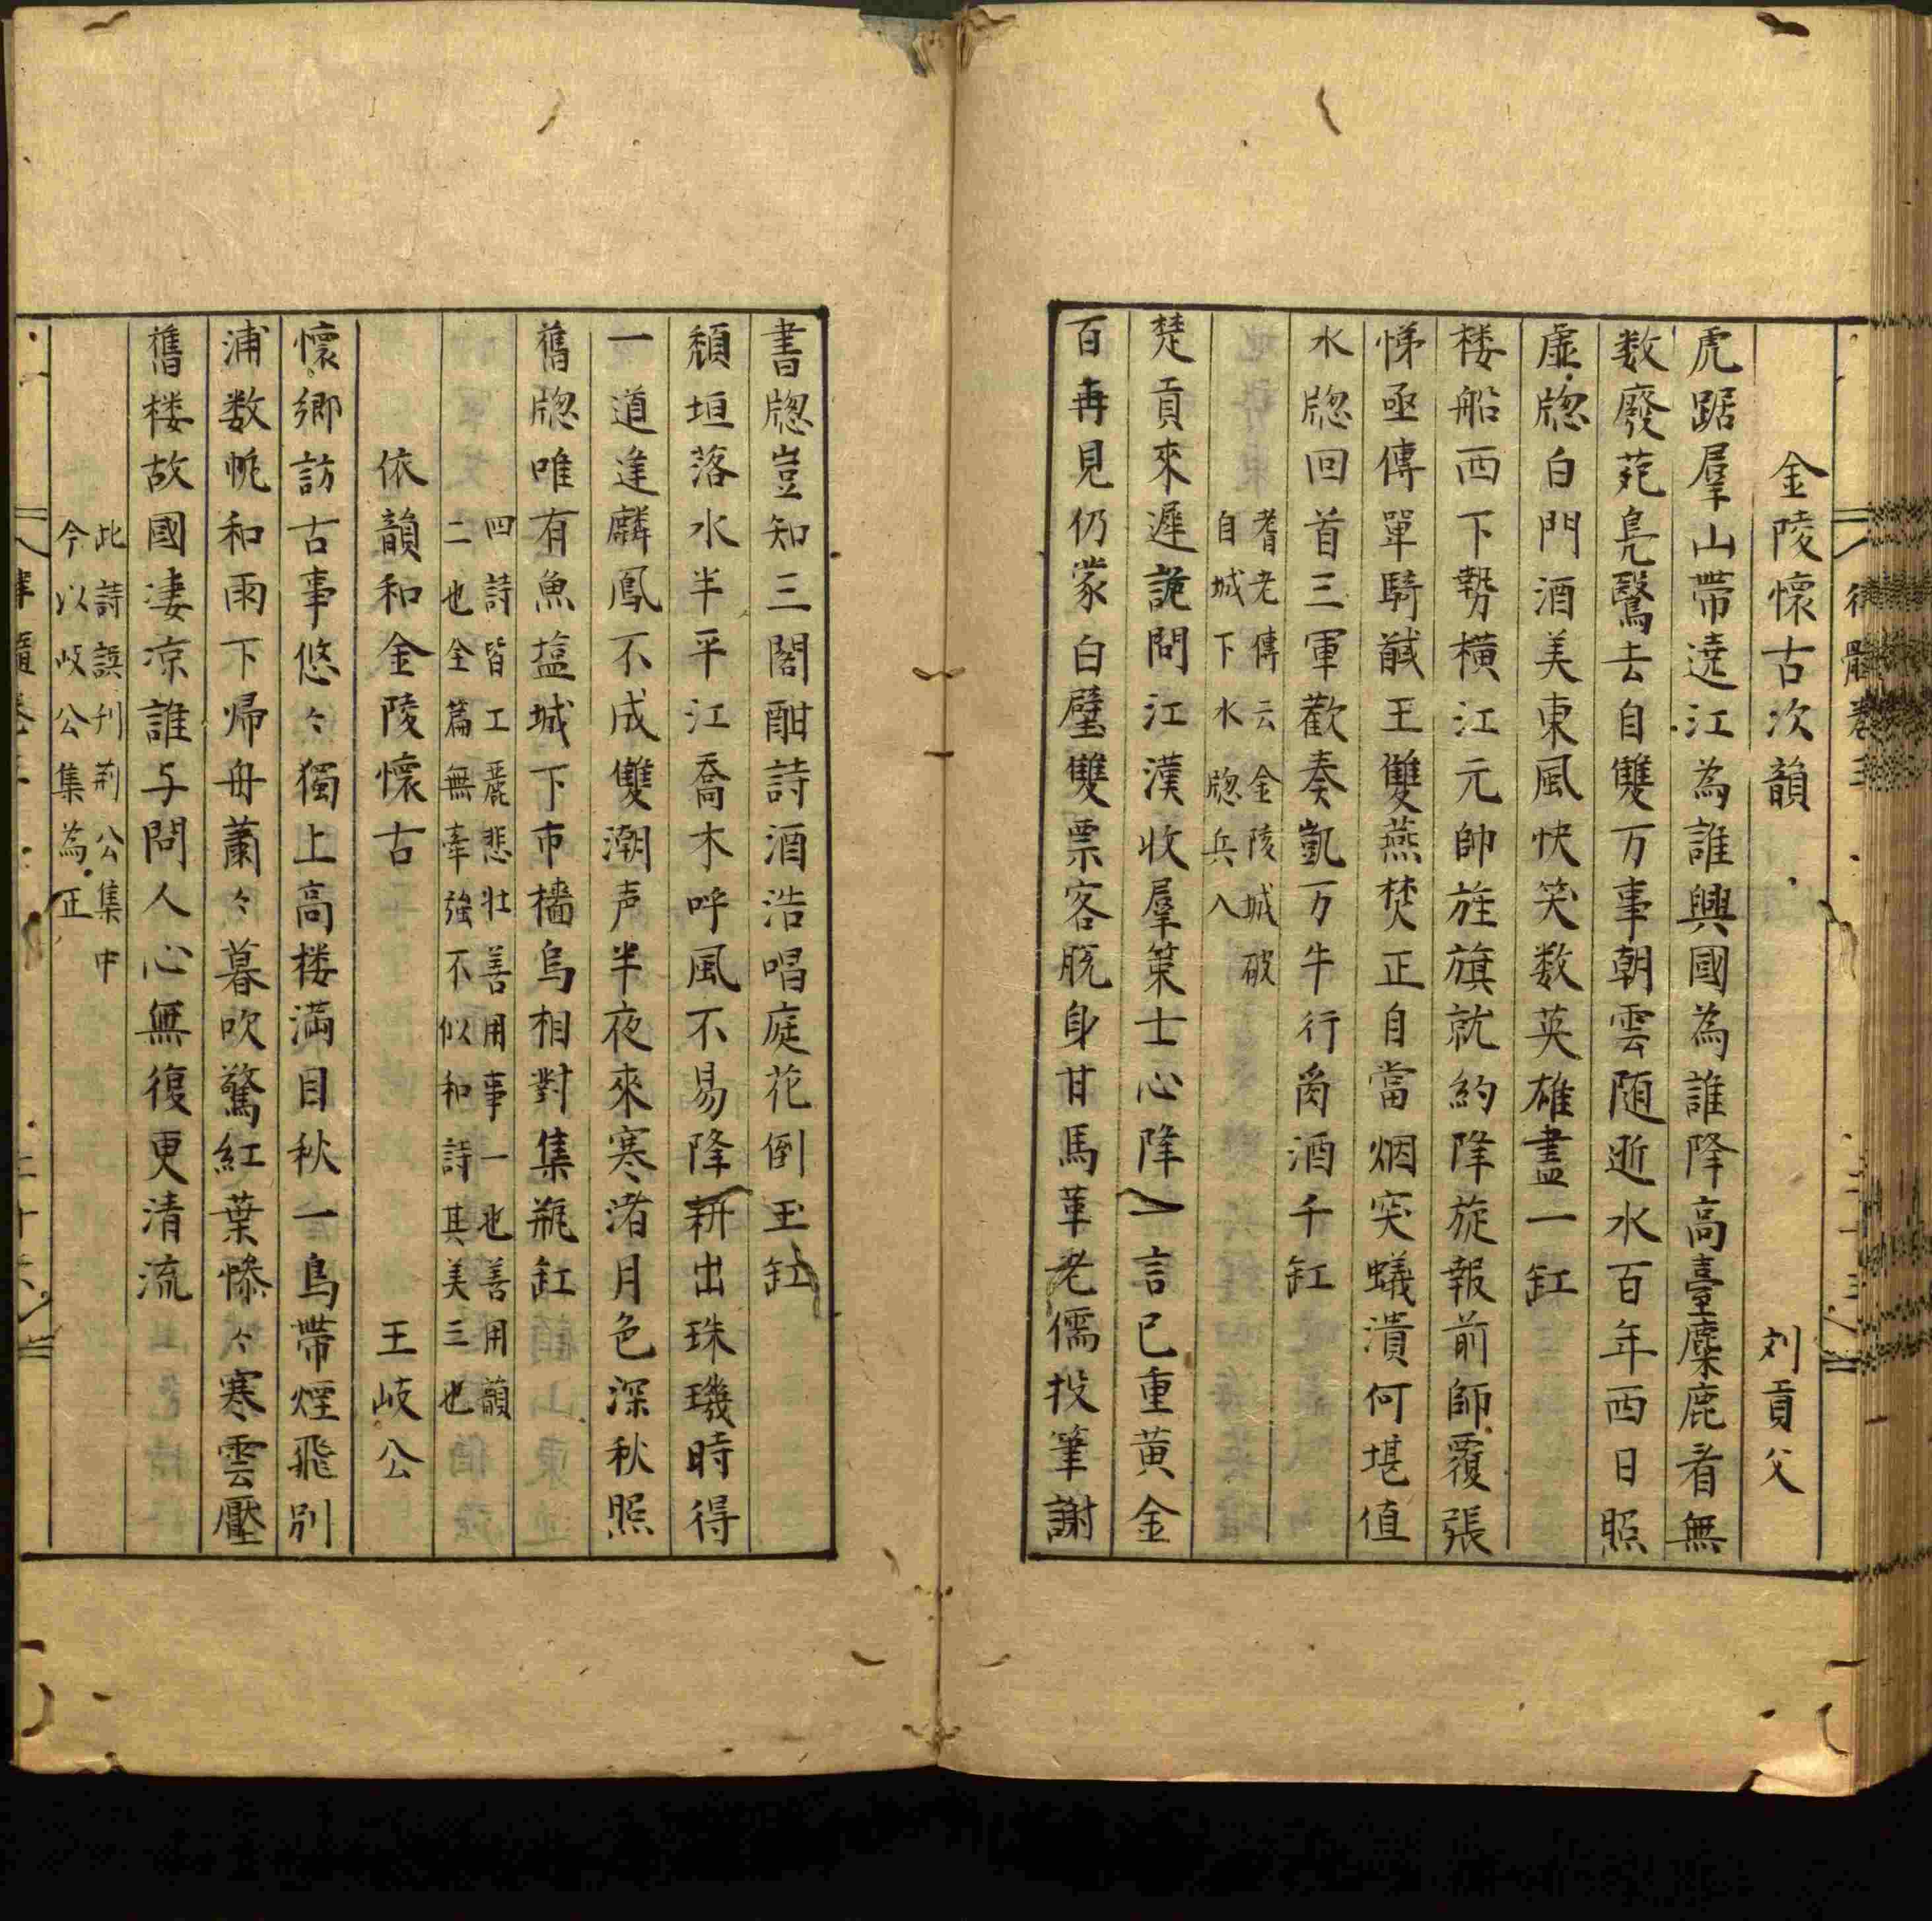 金陵懷古次韻　刘貢父
虎踞羣山帶遶江為誰興國為誰降高臺麋鹿看無
数廢苑鳬鷖去自雙万事朝雲随逝水百年西日照
虛牎白門酒美東風快笑数英雄盡一缸
楼船西下勢橫江元帥旌旗就約降旋報前師覆張
悌亟傳單騎馘王雙燕焚正自當烟突蟻潰何堪值
水牎回首三軍歡奏凱万牛行胾酒千缸
耆老傳云金陵城破
自城下水牎兵入
楚貢來遲詭問江漢收羣策士心降一言已重黄金
百再見仍蒙白璧雙票客脱身甘馬革老儒投筆謝
書牎豈知三閣酣詩酒浩唱庭花倒玉缸
頽垣落水半平江喬木呼風不易降耕出珠璣時得
一道逢麟鳳不成雙潮声半夜來寒渚月色深秋照
舊牎唯有魚塩城下市檣烏相對集瓶缸
四詩皆工麗悲壮善用事一也善用韻
二也全篇無牽強不似和詩其美三也
依韻和金陵懷古　王岐公
懷鄉訪古事悠々獨上高楼満目秋一鳥帶煙飛别
浦数帆和雨下帰舟蕭々暮吹驚紅葉慘々寒雲壓
舊楼故國凄凉誰与問人心無復更清流
此詩誤刋荆公集中
今以岐公集為正